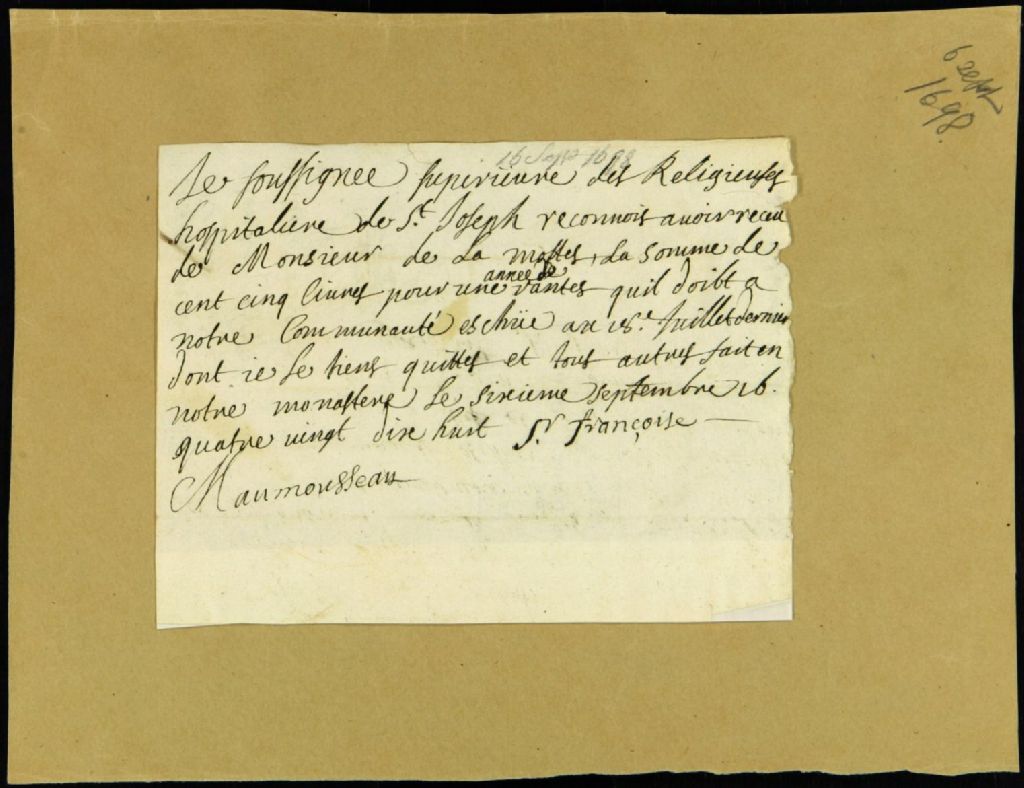 6 sept
1698
16 Sept 1698
Je soussignee superieure des Religieuses
hospitaliere de St. Joseph reconnois avoir receu
de Monsieur de La mottes, La somme de
cent cinq livres pour une année de rantes quil doibt a
notre Communauté eschüe au 18.e Juillet dernier
dont ie le tiens quittes et tous autres fait en
notre monastere Le sixieme septembre 16.
quatre vingt dixe huit Sr. françoise
Maumousseau